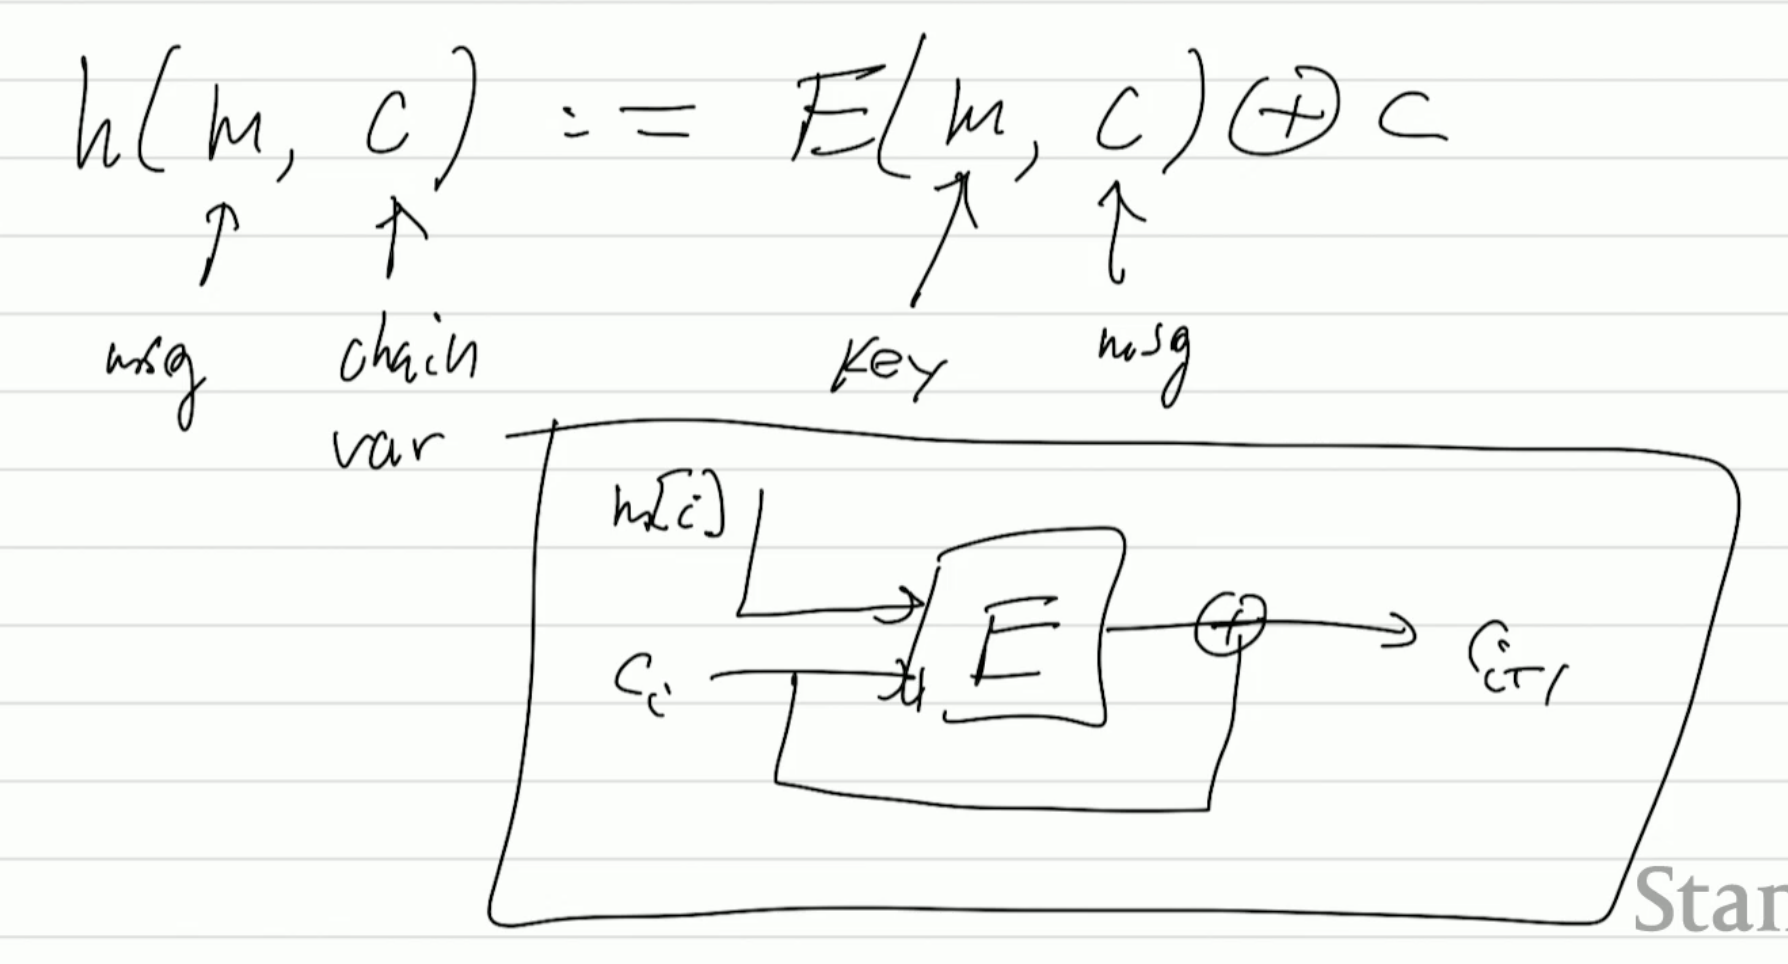 h(m, c) := E(m, c) ⊕ c
msg chain var key msg
m[i]
E ⊕
c_i c_{i+1}
Stan